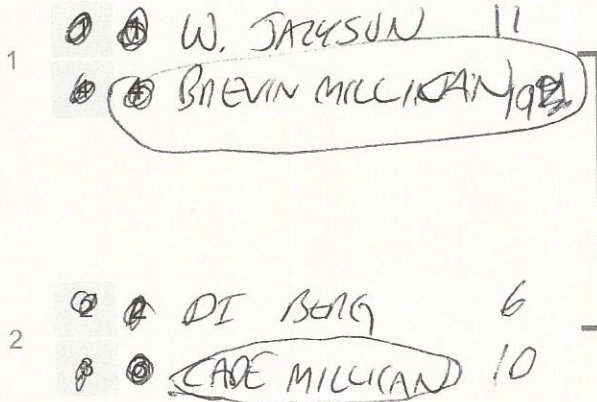 1
W. JACKSON 11
BREVIN MILLIKAN
DI BERG 6
2
CADE MILLIKAN 10